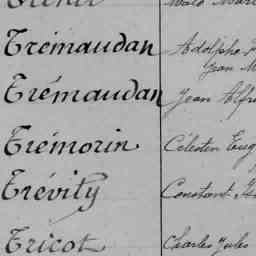 Trémaudan Adolphe
Jean
Trémaudan Jean
Trémorin Célestin
Trévily Constant
Tricot Charles Jules